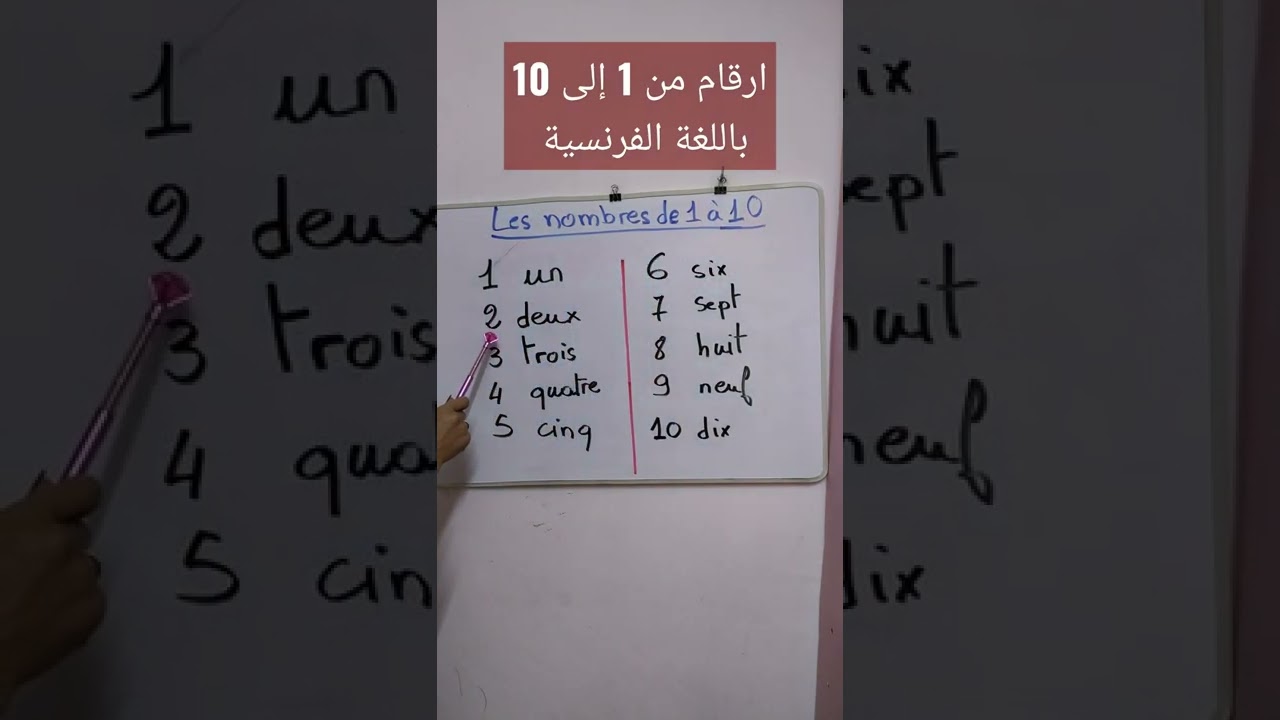 ارقام من 1 إلى 10
باللغة الفرنسية
Les nombres de 1 à 10
1 un
2 deux
3 trois
4 quatre
5 cinq
6 six
7 sept
8 huit
9 neuf
10 dix